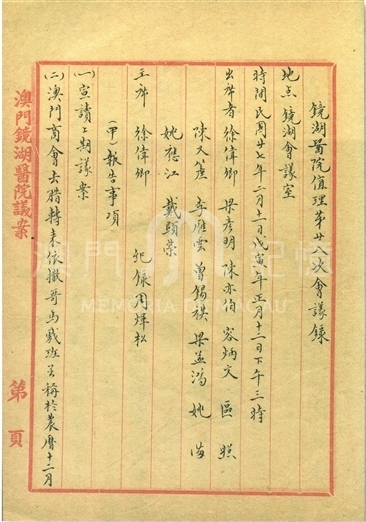 鏡湖醫院值理第廿八次會議錄
地点 鏡湖會議室
時間民國廿七年二月十二日戊寅年正月十三日下午三時
出席者 徐偉卿 梁彥明 陳亦伯 容炳文 區照
陳又蘆 李應雲 曾錫祺 梁並鴻 姚海
姚應江 戴顯榮
主席 徐偉卿 紀錄 周焯松
(甲)報告事項
(一)宣讀上期議案
(二)澳門商會去腊轉來依撒哥馬戲班 稱於農曆十二月
澳門鏡湖醫院議案
第 頁
澳門記憶
MEMÓRIA DE MACAU